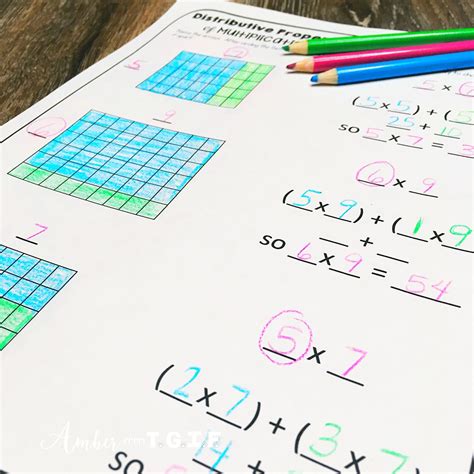 Distributive Prope
of Multiplicat
5
(5x5) + (
25 +
so 5x7 =
6
9
6 x 9
(5x9) + (1x9
__ + __
so 6x9 = 54
7
5 x 7
(2x7) + (3x7
so 14 +
Amber from T.G.I.F.